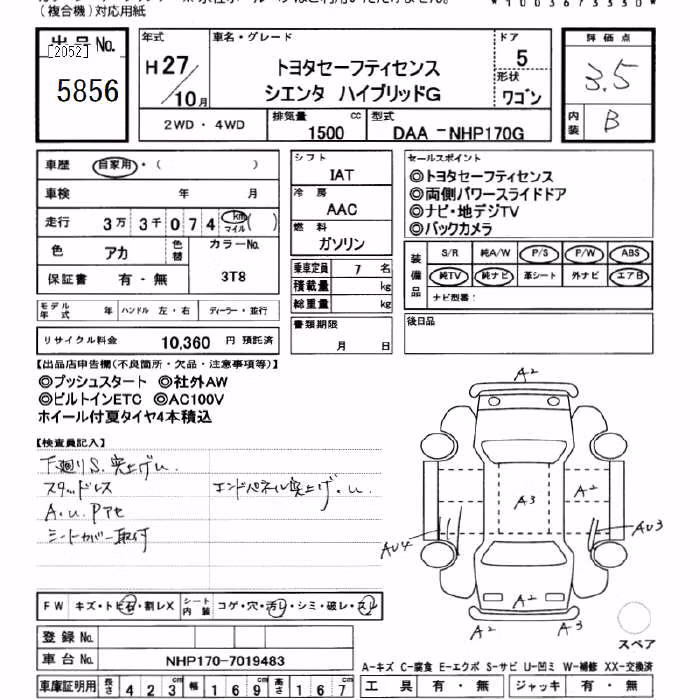 (複合機)対応用紙
*1003673550*
出品No.
[2052]
5856
年式
H27/10月
車名・グレード
トヨタセーフティセンス
シエンタ ハイブリッドG
ドア
5
形状
ワゴン
評価点
3.5
内装
B
2WD・4WD
排気量
1500
cc
型式
DAA-NHP170G
車歴
自家用・( )
車検 年 月
走行 3万3千074 km マイル ( )
色 アカ
色替
カラーNo.
3T8
保証書 有・無
シフト
IAT
冷房
AAC
燃料
ガソリン
乗車定員 7 名
積載量 kg
総重量 kg
セールスポイント
◎トヨタセーフティセンス
◎両側パワースライドドア
◎ナビ・地デジTV
◎バックカメラ
装備品
S/R 純A/W P/S P/W ABS
純TV 純ナビ 革シート 外ナビ エアB
ナビ型番:
モデル年式 年 ハンドル 左・右 ディーラー・並行
リサイクル料金 10,360 円 預託済
書類期限
月 日
後日品
【出品店申告欄(不良箇所・欠品・注意事項等)】
◎プッシュスタート ◎社外AW
◎ビルトインETC ◎AC100V
ホイール付夏タイヤ4本積込
【検査員記入】
下廻りS.突上げu.
スタッドレス
エンドパネル突上げ.u.
A.u.Pアセ
シートカバー取付
A2
A3
A2
AU4
AU3
A2
A2
A2
スペア
FW キズ・トビ石・割レX
シート内装 コゲ・穴・汚レ・シミ・破レ・スレ
登録No.
車台No. NHP170-7019483
車庫証明用 長さ 423cm 幅 169cm 高さ 167cm
A-キズ C-腐食 E-エクボ S-サビ U-凹ミ W-補修 XX-交換済
工具 有・無 ジャッキ 有・無